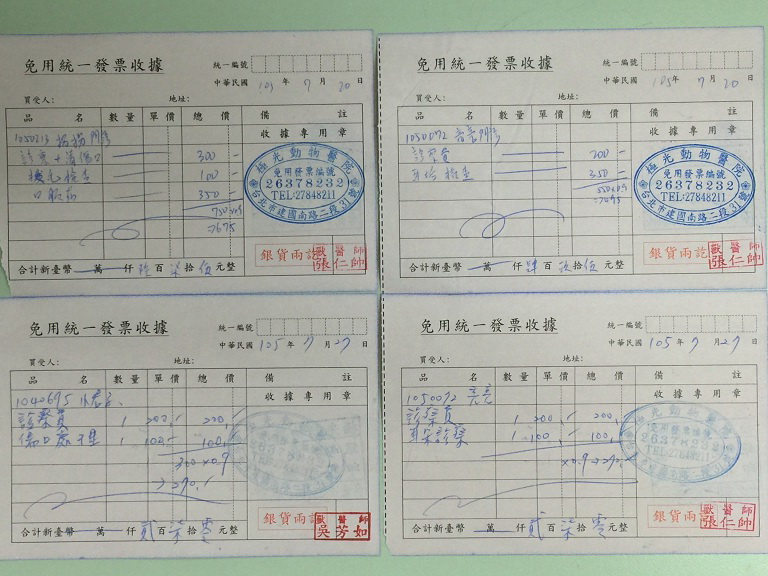 免用統一發票收據
統一編號
中華民國 105 年 7 月 20 日
買受人: 地址:
品名 數量 單價 總價 備註
收據專用章
1050213 門診
診察+清傷口 300
檢查 100
口服藥 350
750x0.9
=675
極光動物醫院
免用發票編號
26378232
TEL:27848211
台北市建國南路二段31號
銀貨兩訖
獸醫師
張仁帥
合計新臺幣 萬 仟 陸 百 柒 拾 伍 元整
免用統一發票收據
統一編號
中華民國 105 年 7 月 20 日
買受人: 地址:
品名 數量 單價 總價 備註
收據專用章
1050092 亮亮 門診
診察費 200
耳朵檢查 350
550x0.9
=495
極光動物醫院
免用發票編號
26378232
TEL:27848211
台北市建國南路二段31號
銀貨兩訖
獸醫師
張仁帥
合計新臺幣 萬 仟 肆 百 玖 拾 伍 元整
免用統一發票收據
統一編號
中華民國 105 年 7 月 27 日
買受人: 地址:
品名 數量 單價 總價 備註
收據專用章
1042695
診察費 1 200 200
傷口處理 1 100 100
300x0.9
=270
銀貨兩訖
獸醫師
吳芳如
合計新臺幣 萬 仟 貳 百 柒 拾 零 元整
免用統一發票收據
統一編號
中華民國 105 年 7 月 27 日
買受人: 地址:
品名 數量 單價 總價 備註
收據專用章
1050092 亮亮
診察費 1 200 200
耳朵診療 1 100 100
x0.9=270
極光動物醫院
免用發票編號
26378232
TEL:27848211
銀貨兩訖
獸醫師
張仁帥
合計新臺幣 萬 仟 貳 百 柒 拾 零 元整